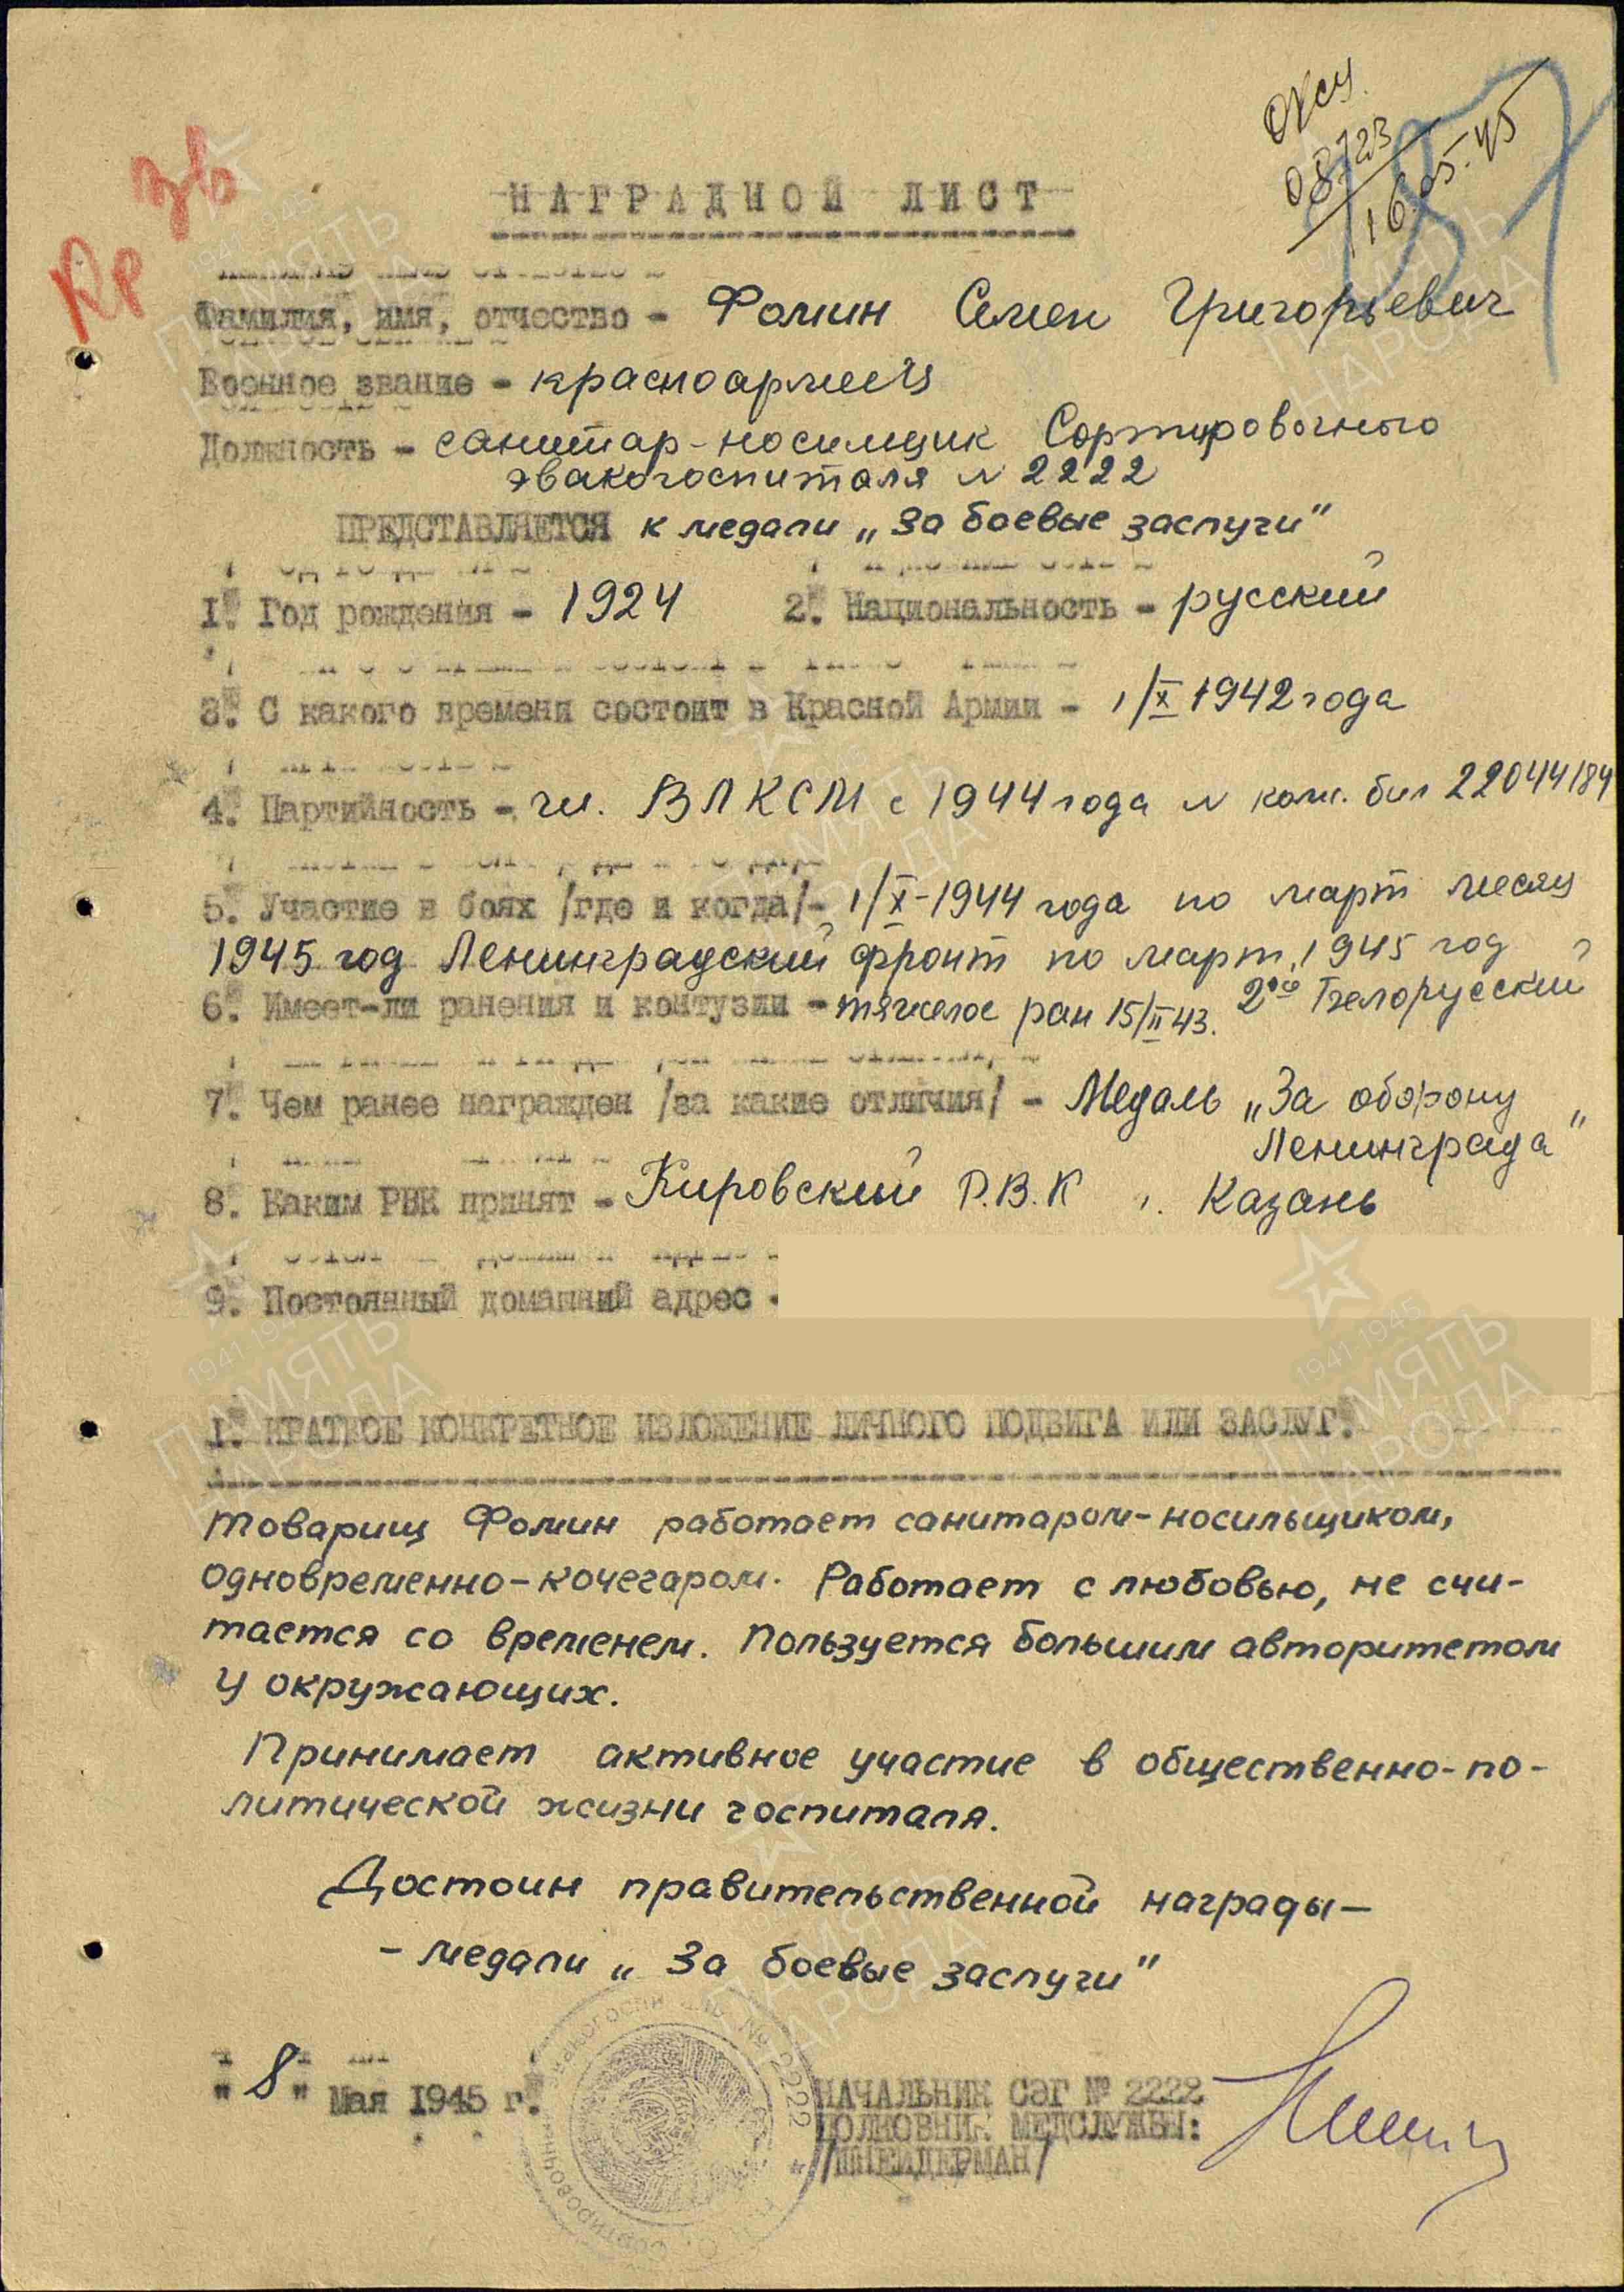 Кр зв
ОКСУ
08723
16.05.45
НАГРАДНОЙ ЛИСТ
Фамилия, имя, отчество - Фомин Семен Григорьевич
Военное звание - красноармеец
Должность - санитар-носилщик Сортировочного
эвакогоспиталя N 2222
ПРЕДСТАВЛЯЕТСЯ к медали „За боевые заслуги"
1. Год рождения - 1924 2. Национальность - русский
3. С какого времени состоит в Красной Армии - 1/X 1942 года
4. Партийность - чл. ВЛКСМ с 1944 года N ком. бил 22044184
5. Участие в боях /где и когда/- 1/X-1944 года по март месяц
1945 год Ленинградский фронт по март 1945 год
2ой Белорусский
6. Имеет-ли ранения и контузии - тяжелое ран 15/II 43.
7. Чем ранее награжден /за какие отличия/ - Медаль „За оборону
Ленинграда"
8. Каким РВК принят - Кировский Р.В.К г. Казань
9. Постоянный домашний адрес -
1. КРАТКОЕ КОНКРЕТНОЕ ИЗЛОЖЕНИЕ ЛИЧНОГО ПОДВИГА ИЛИ ЗАСЛУГ.
Товарищ Фомин работает санитаром-носильщиком,
одновременно-кочегаром. Работает с любовью, не счи-
тается со временем. Пользуется большим авторитетом
у окружающих.
Принимает активное участие в общественно-по-
литической жизни госпиталя.
Достоин правительственной награды-
- медали „За боевые заслуги"
"8" Мая 1945 г.
НАЧАЛЬНИК СЭГ № 2222
ПОЛКОВНИК МЕДСЛУЖБЫ:
/ШНЕЙДЕРМАН/
1941-1945
ПАМЯТЬ
НАРОДА